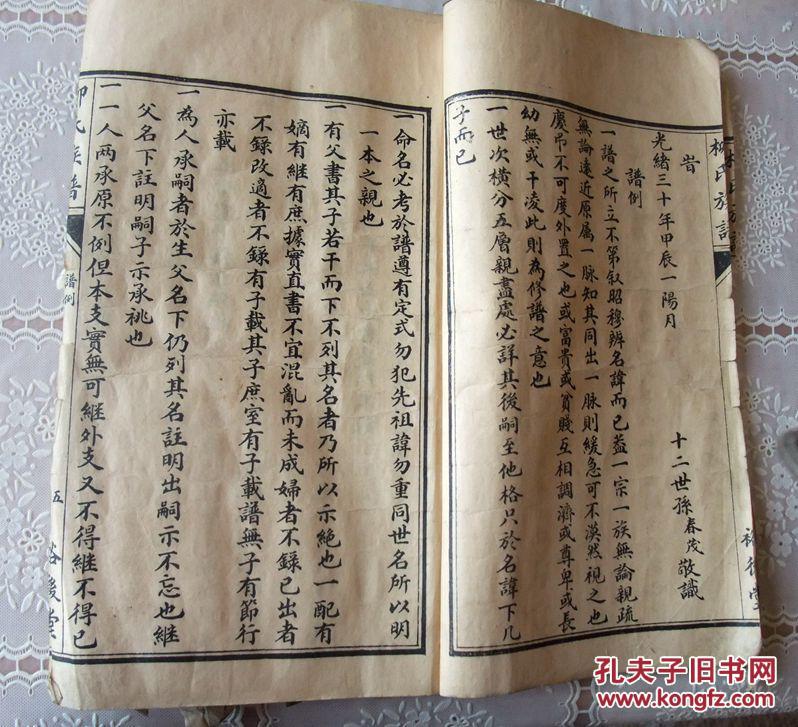 旹
光緒三十年甲辰一陽月
十二世孫春茂敬識
譜例
一譜之所立不第叙昭穆辨名諱而已葢一宗一族無論親疏
無論遠近原属一脉知其同出一脉則緩急可不漠然視之也
慶吊不可度外置之也或富貴或貧賤互相調濟或尊卑或長
幼無或干淩此則為修譜之意也
一世次横分五層親盡處必詳其後嗣至他格只於名諱下几
子而已
一命名必考於譜遵有定式勿犯先祖諱勿重同世名所以明
一本之親也
一有父書其子若干而下不列其名者乃所以示絶也一配有
嫡有継有庶據實直書不宜混亂而未成婦者不録已出者
不録改適者不録有子載其子庶室有子載譜無子有節行
亦載
一為人承嗣者於生父名下仍列其名註明出嗣示不忘也継
父名下註明嗣子示承祧也
一一人两承原不例但本支實無可継外支又不得継不得已
氏族譜
譜例
五
孔夫子旧书网
www.kongfz.com